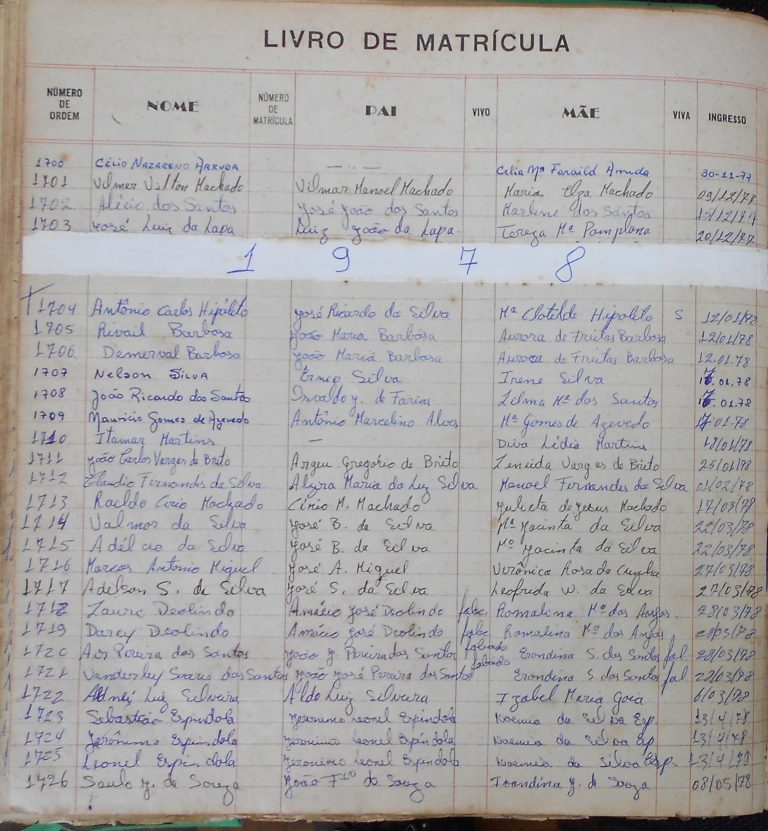 LIVRO DE MATRÍCULA
NÚMERO DE ORDEM NOME NÚMERO DE MATRÍCULA PAI VIVO MÃE VIVA INGRESSO
1700 CÉLIO NAZARENO ARRUDA Celia Mª Faraild Arruda 30-11-77
1701 Vilmar Vilton Machado Vilmar Manoel Machado Maria Elza Machado 09/12/77
1702 Alécio dos Santos José João dos Santos Marlene dos Santos
1703 José Luiz da Lapa Luiz João da Lapa Tereza Mª Pamplona 20/12/77
1 9 7 8
1704 Antônio Carlos Hipólito José Ricardo da Silva Mª Clotilde Hipolito S 12/01/78
1705 Rivail Barbosa João Maria Barbosa Aurora de Freitas Barbosa 12/01/78
1706 Demerval Barbosa João Maria Barbosa Aurora de Freitas Barbosa 12.01.78
1707 Nelson Silva Ernig Silva Irene Silva .01.78
1708 João Ricardo dos Santos de Farias Zilma Mª dos Santos .01.78
1709 Mauricio Gomes de Azevedo Antônio Marcelino Alves Mª Gomes de Azevedo 17.01.78
1710 Itamar Martins — Diva Lídia Martins /01/78
1711 João Carlos Vargas de Brito Argeu Gregório de Brito Zeneida Vargas de Brito 25/01/78
1712 Claudio Fernandes da Silva Alzira Maria da Luz Silva Manoel Fernandes da Silva 01/02/78
1713 Raildo Cirio Machado Cirio M. Machado Julieta de Jesus Machado 17/03/78
1714 Valmor da Silva José B. da Silva Mª Jacinta da Silva 22/03/78
1715 Adélcio da Silva José B. da Silva Mª Jacinta da Silva 22/03/78
1716 Marcos Antônio Miguel José A. Miguel Verônica Rosa da Cunha 27/03/78
1717 Adelson S. da Silva José S. da Silva Leofrida W. da Silva 27/03/78
1718 Lauri Deolindo Amácio José Deolindo falec. Romalina Mª dos Anjos 28/03/78
1719 Darcy Deolindo Amácio José Deolindo falec Romalina Mª dos Anjos 28/03/78
1720 Air Pereira dos Santos João J. Pereira dos Santos falecido Erondina S. dos Santos fal 28/03/78
1721 Vanderley Soares dos Santos João José Pereira dos Santos falecido Erondina S. dos Santos fal 28/03/78
1722 Luz Silveira Aldo Luz Silveira Izabel Maria Goia /03/78
1723 Sebastião Espindola Jeronimo Leonel Espindola Noemia da Silva Esp. 13/4/78
1724 Jerônimo Espindola Jeronimo Leonel Espindola Noemia da Silva Esp 13/4/78
1725 Leonel Espindola Jeronimo Leonel Espindola Noemia da Silva Esp. 13/4/78
1726 Saulo J. de Souza João Fco de Souza Ivandina J. de Souza 08/05/78